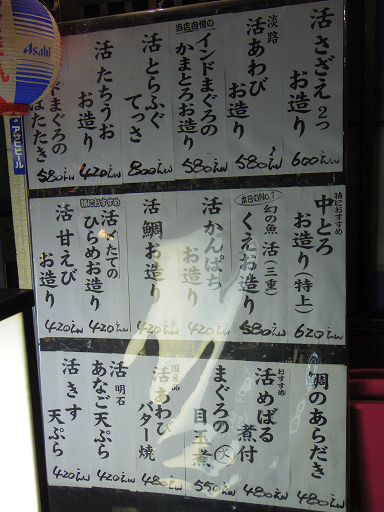 活 さざえ 2つ
お造り
600えん
淡路
活 あわび
お造り
580えん
当店自慢の
インドまぐろの
かまとろお造り
580えん
活 とらふぐ
てっさ
800えん
活 たちうお
お造り
420えん
まぐろの
たたき
580えん
特におすすめ
中とろ
お造り(特上)
620えん
本日のNo.1
幻の魚 活(三重)
くえお造り
580えん
活 かんぱち
お造り
420えん
活 鯛お造り
420えん
特におすすめ
活〆たての
ひらめお造り
420えん
活 甘えび
お造り
420えん
鯛のあらだき
480えん
おすすめ
活めばる
煮付
480えん
まぐろの
目玉煮
大
550えん
国産
活あわび
バター焼
480えん
活 明石
あなご天ぷら
420えん
活 きす
天ぷら
420えん
Asahi
アサヒビール